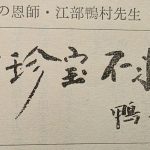 の恩師・江部鴨村先生
珍宝不
鴨